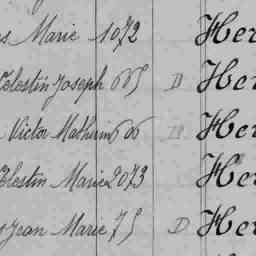 Marie 1072 Her
Célestin Joseph 665 D Her
Victor Mathurin 606 Her
Célestin Marie 2073 Her
Jean Marie 75 D Her